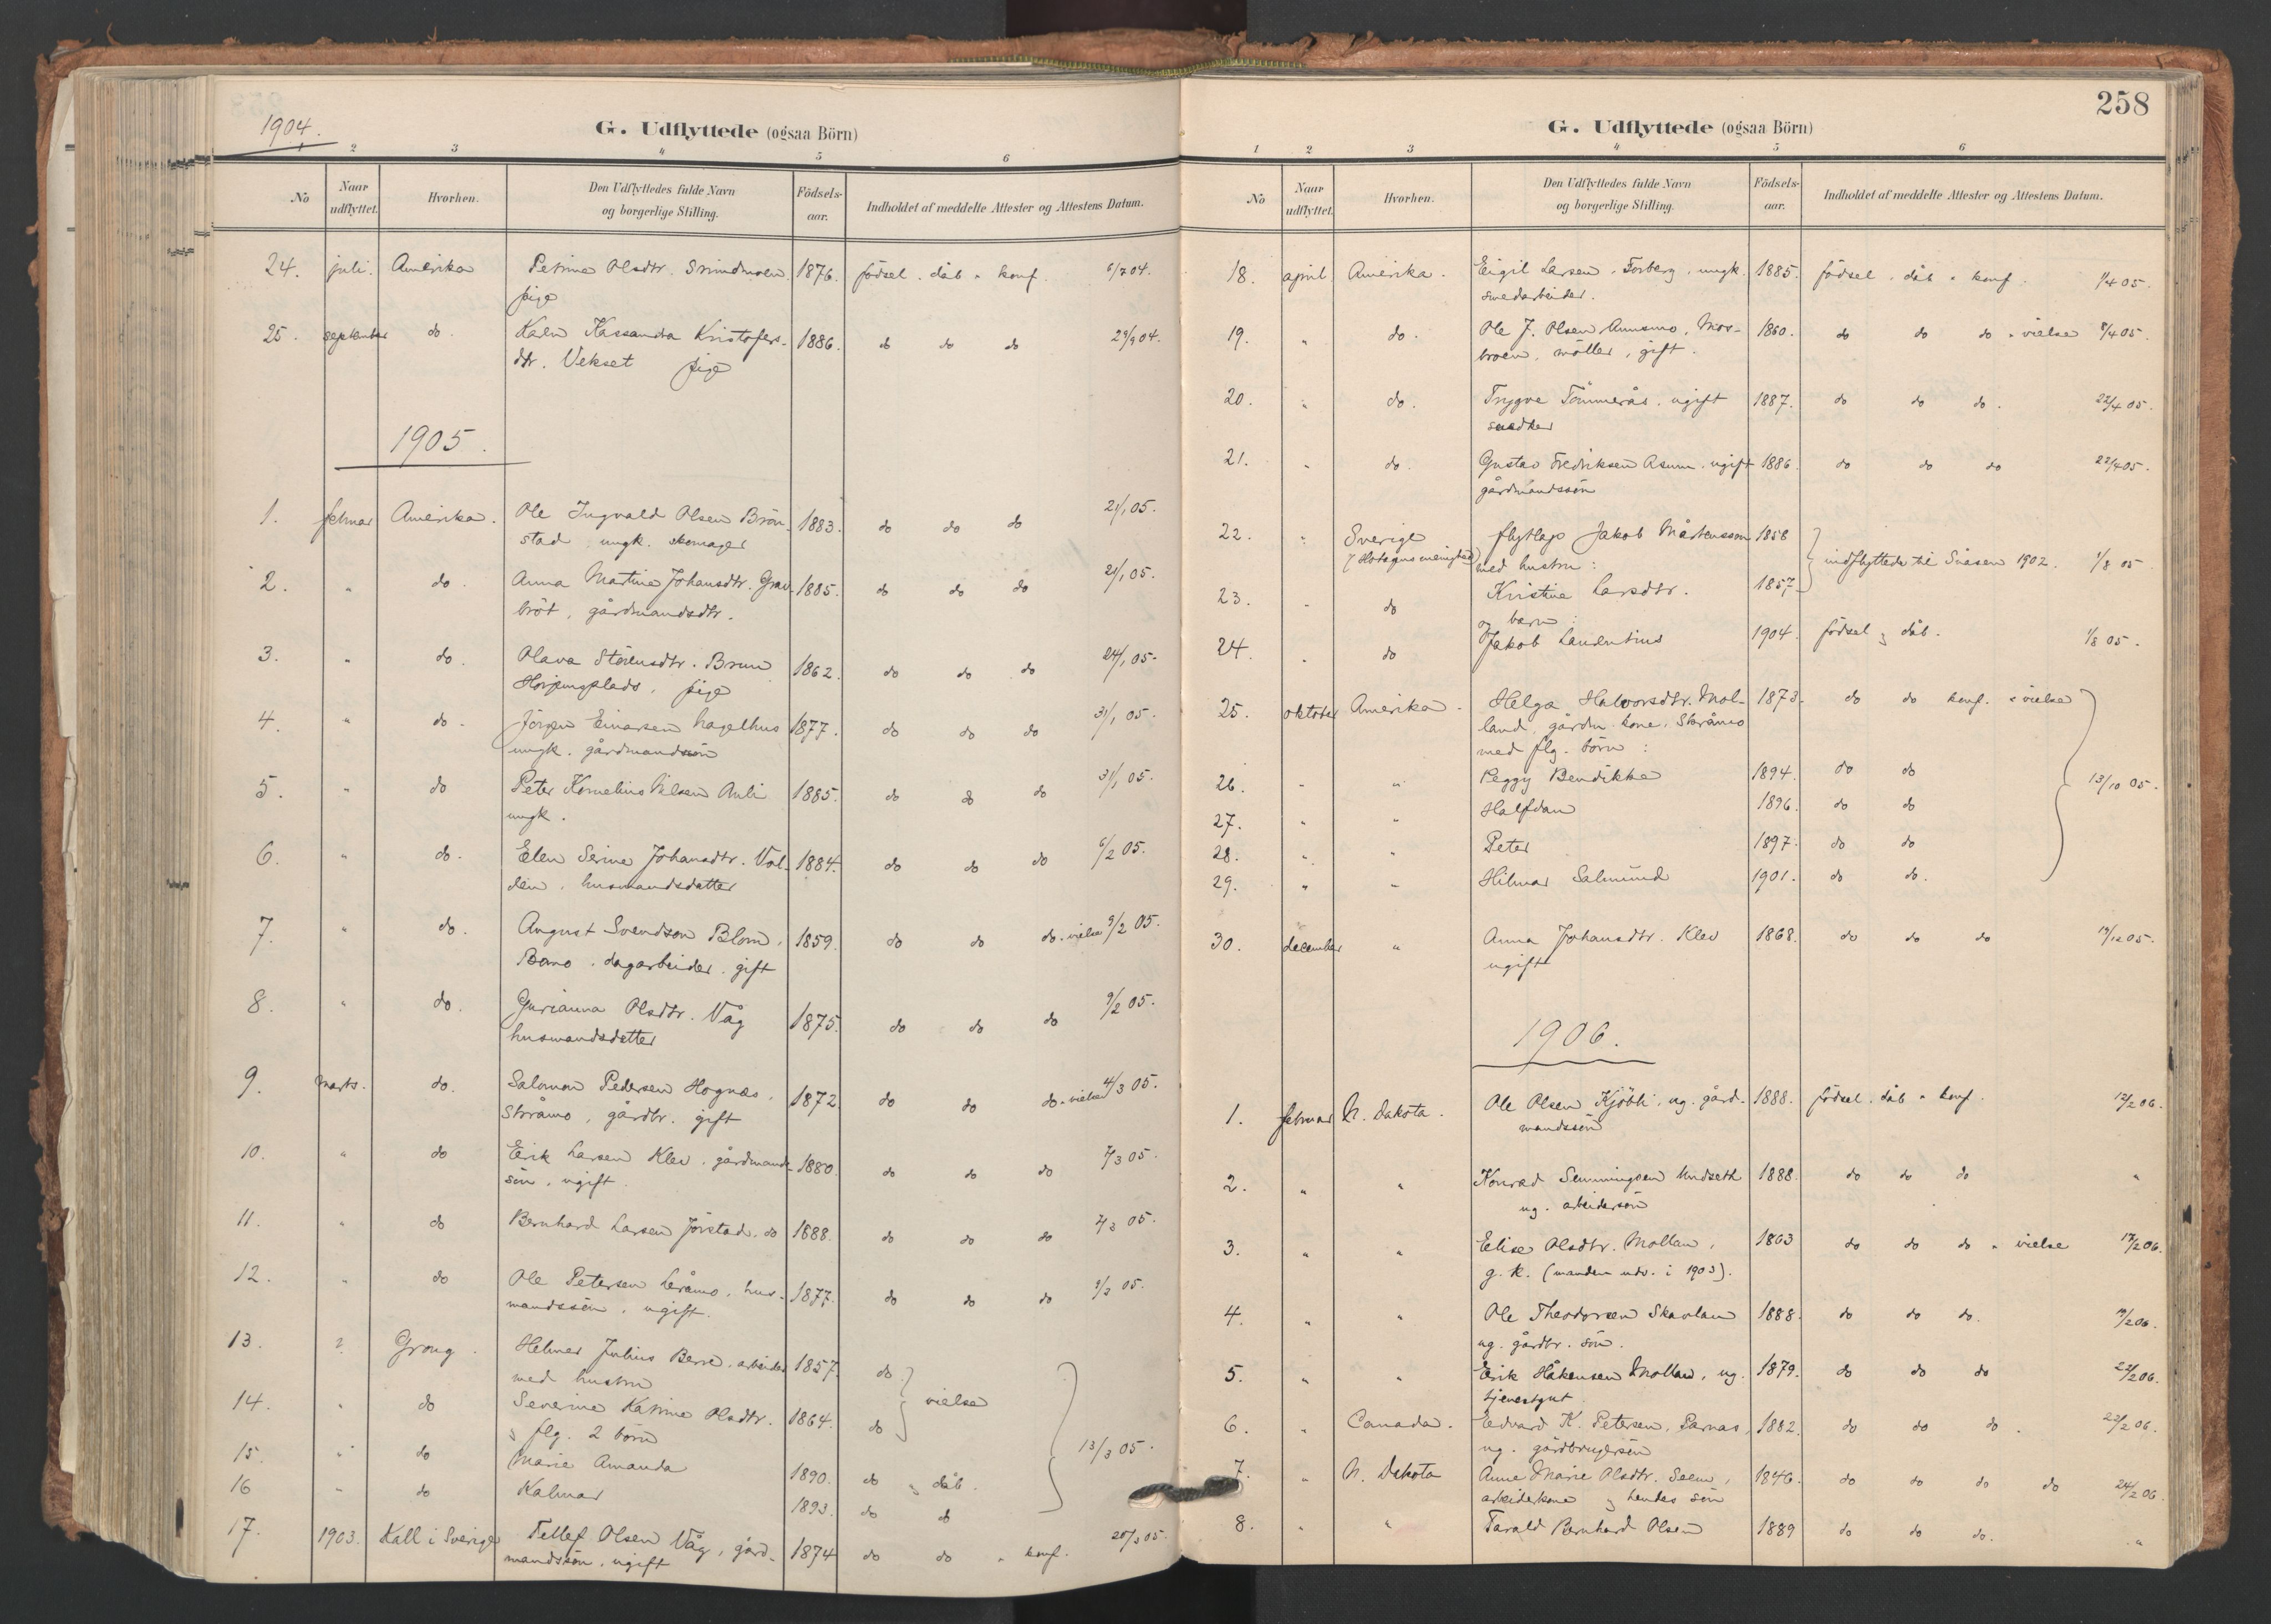 1904.
G. Udflyttede (ogsaa Börn)
2 3 4 5 6
No Naar udflyttet. Hvorhen. Den Udflyttedes fulde Navn og borgerlige Stilling. Födsels-aar. Indholdet af meddelte Attester og Attestens Datum.
24. juli. Amerika Petrine Olsdtr. 1876. födsel. dåb " konf. 6/7 04.
pige
25. september do. Karen Kassandra Kristofers- 1886. do do do 29/9 04.
dtr. Vekset pige
1905.
1. februar Amerika. Ole Ingvald Olsen Brön- 1883. do do do 21/1 05.
stad ungk. skomager
2. " do. Anna Martine Johansdtr. Grav- 1885. do do do 21/1 05.
bröt, gårdmandsdtr.
3. " do. Olava Störensdtr. Brun 1862. do do do 24/1 05.
pige
4. " do. Jörgen Einarsen Hagelhus 1877. do do do 31/1 05.
ungk. gårdmandssön
5. " do Peter Kornelius Nilsen Auli 1885. do do do 31/1 05.
ungk.
6. " do. Elen Serine Johansdtr. Val- 1884. do do do 6/2 05.
den. husmandsdatter
7. " do. August Svendson Blom, 1859. do do do. vielse 9/2 05.
dagarbeider. gift
8. " do. Gurianna Olsdtr. Våg 1875. do do do 9/2 05.
husmandsdatter
9. Marts. do. Salomon Pedersen Hognæs, 1872 do do do. vielse 4/3 05.
Stråmo, gårdbr. gift
10. " do Erik Larsen Klev. gårdmands- 1880 do do do 7/3 05.
sön, ugift.
11. " do Bernhard Larsen Jörstad. do 1888. do do do 7/3 05.
12. " do Ole Petersen Leråmo, hus- 1877. do do do 9/3 05.
mandssön, ugift.
13. ? Grong. Helmer Julius Berre. arbeider 1857. do
med hustru
14. " do Severine Katrine Olsdtr. 1864. do vielse
& flg. 2 börn
15. " do Marie Amanda 1890. do & dåb. 13/3 05.
16 " do Kalmar 1893. do do
17. 1903. Kall i Sverige Tellef Olsen Våg, gård- 1874 do do " konf. 20/3 05.
mandssön, ugift
258
G. Udflyttede (ogsaa Börn)
1 2 3 4 5 6
No Naar udflyttet. Hvorhen. Den Udflyttedes fulde Navn og borgerlige Stilling. Födsels-aar. Indholdet af meddelte Attester og Attestens Datum.
18. april Amerika. Eigil Larsen, Forberg, ungk. 1885. födsel. dåb " konf. 1/4 05.
smedarbeider.
19. " do. Ole J. Olsen Aunsmo, Mos- 1860. do do do " vielse 8/4 05.
broen, möller, gift.
20. " do. Trygve Tömmerås. ugift 1887. do do do. 22/4 05.
snedker
21. " do. Gustav Fredriksen Asum. ugift 1886. do do do 22/4 05.
gårdmandssön
22. " Sverige flytlap Jakob Mårtensson 1858
(Hotagns menighed) med hustru: indflyttede til Snåsen 1902. 1/8 05
23. " do Kristine Larsdtr. 1857.
og barn:
24. " do Jakob Laurentius 1904. födsel & dåb. 1/8 05.
25. oktober Amerika. Helga Halvorsdtr. Mol- 1873. do do konf. " vielse
land, gårdm. kone. Stråmo
med flg. börn:
26. " " Peggy Bendikke 1894. do do 13/10 05.
27. " " Halfdan 1896. do do
28. " " Peter 1897. do do
29. " " Hilmar Salmund 1901. do do.
30. december " Anna Johansdtr. Klev 1868. do do do 19/12 05.
ugift
1906.
1. februar N. Dakota. Ole Olsen Kjöbli. ug. gård- 1888. födsel. dåb " konf. 12/2 06.
mandssön
2. " " Konrad Semmingsen Undseth 1888. do do do "
ug. arbeidersön
3. " " Elise Olsdtr. Mollan, 1863 do do do " vielse 17/2 06.
g. k. (manden udv. i 1903).
4. " " Ole Theodorsen Skavlan 1888. do do do. 19/2 06.
ug. gårdbr. sön.
5. " " Erik Håkensen Mollan, ug. 1879. do do do 22/2 06.
tjenestgut
6. " Canada. Edvard K. Petersen. Parnas, 1882. do do do. 22/2 06.
ug. gårdbrugersön
7. " N. Dakota Anne Marie Olsdtr. Seem, 1846. do do do do 24/2 06.
arbeiderkone & hendes sön
8. " " Tarald Bernhard Olsen 1889 do do do. "